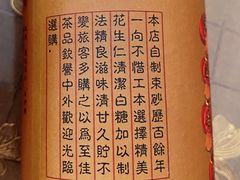 本店自制束砂歷百餘年
一向不惜工本選擇精美
花生仁清潔白糖加以制
法精良滋味清甘久貯不
變旅客多購之以爲至佳
茶品欽譽中外歡迎光臨
選購·